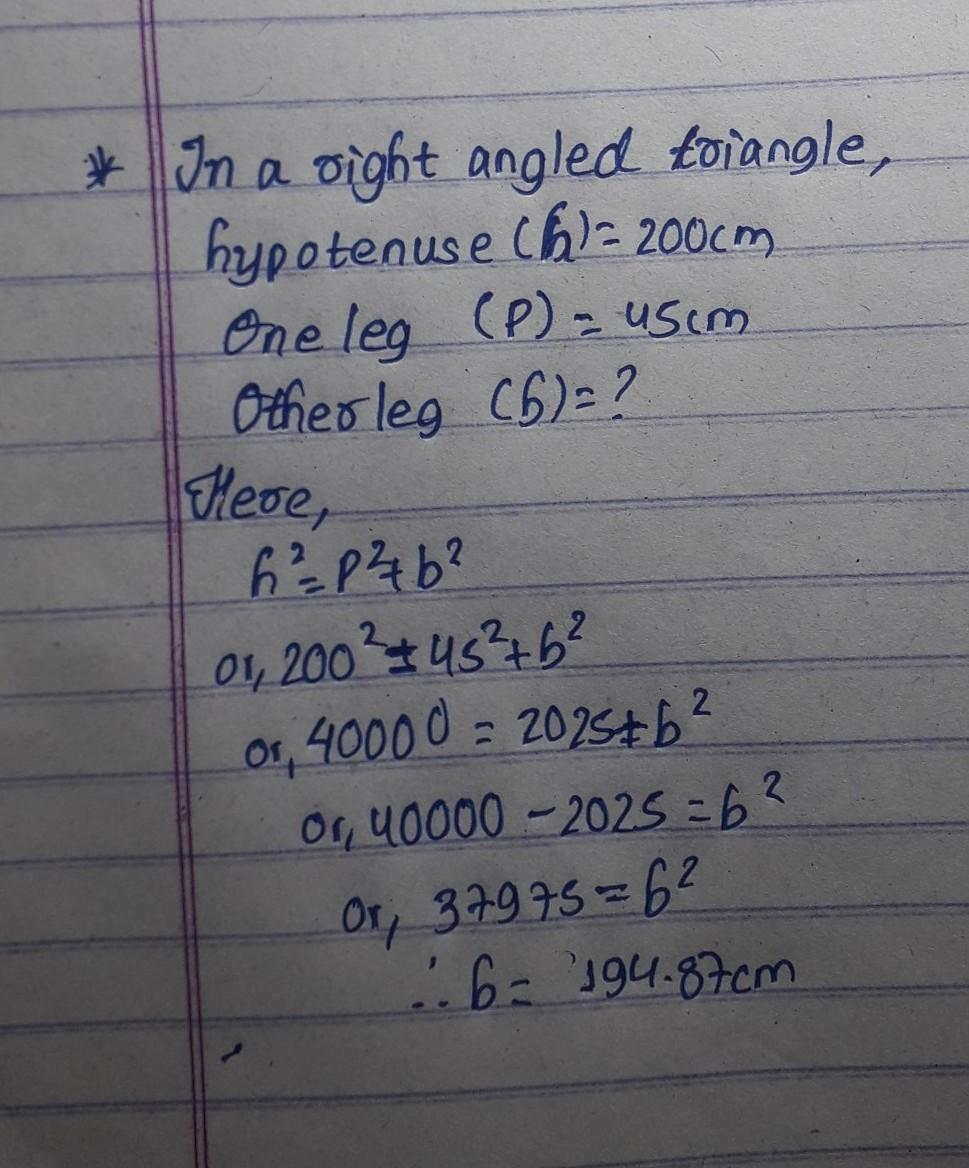 * In a right angled triangle,
hypotenuse (h) = 200cm
One leg (P) = 45cm
Other leg (b) = ?
Here,
h² = p² + b²
or, 200² = 45² + b²
or, 40000 = 2025 + b²
or, 40000 - 2025 = b²
or, 37975 = b²
∴ b = 194.87cm